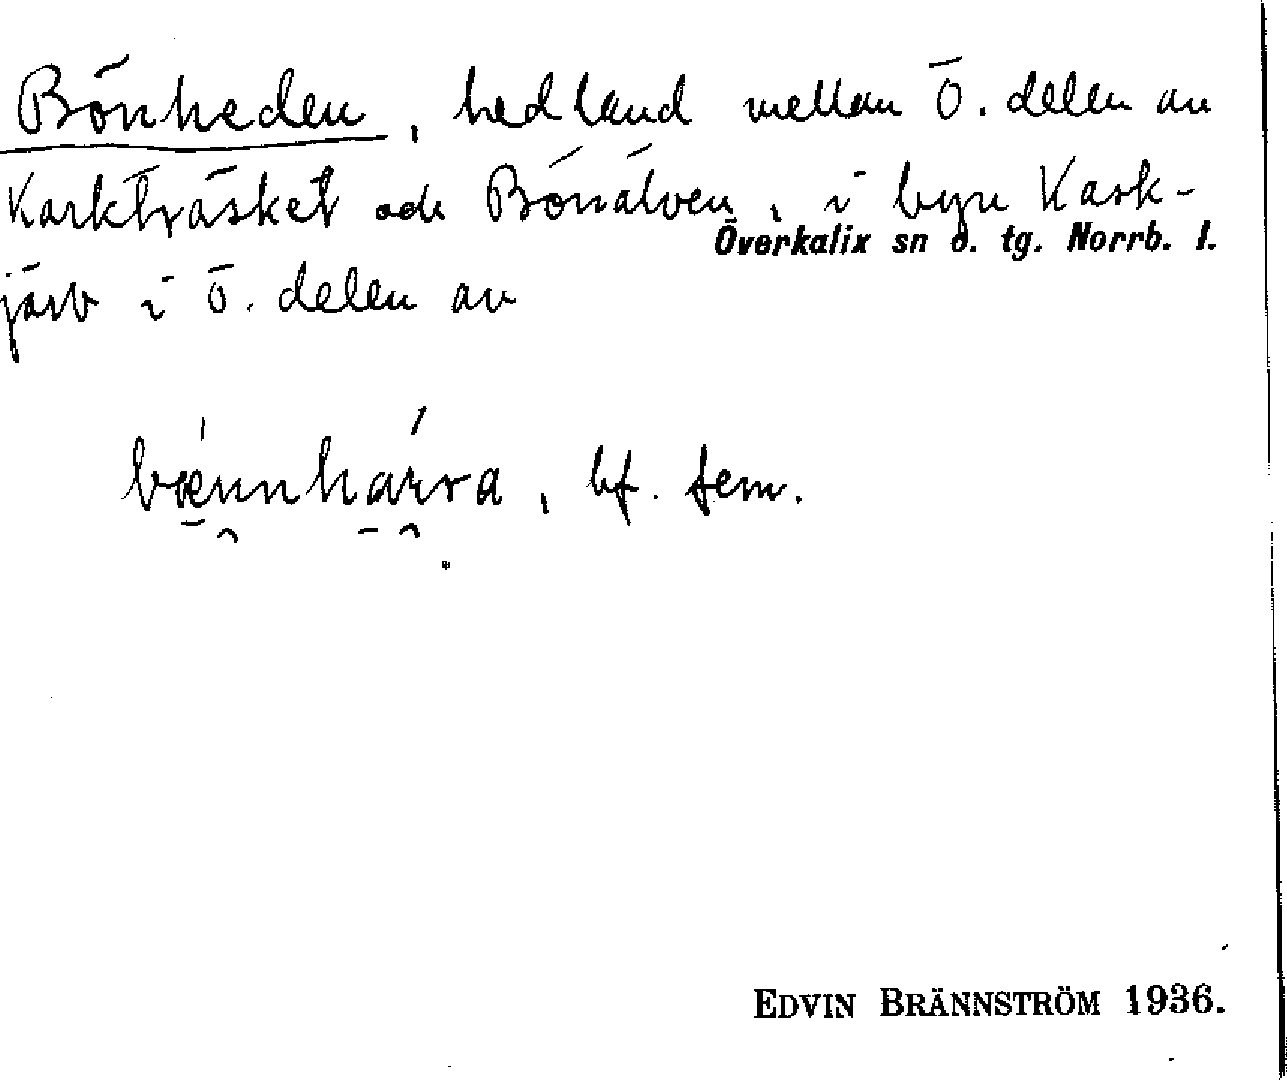 Bönheden, hedland mellan ö. delen av
Karkträsket och Bönälven, i byn Kask-
järv i ö. delen av
Överkalix sn o. tg. Norrb. l.
bf. fem.
EDVIN BRÄNNSTRÖM 1936.